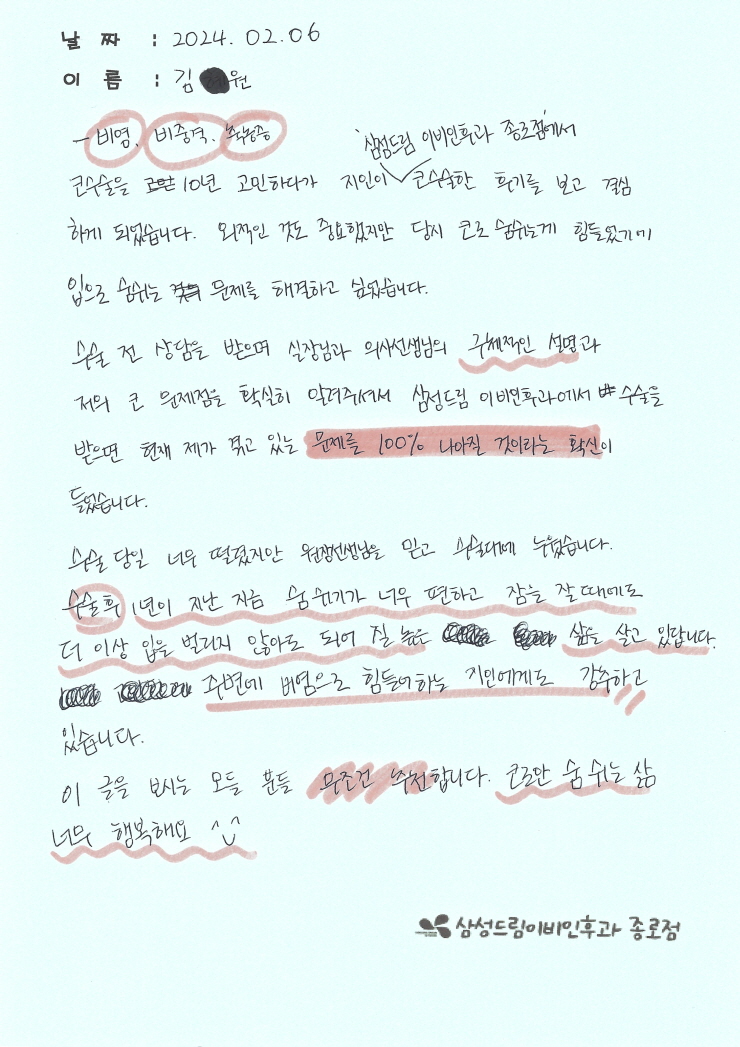 날 짜 : 2024. 02. 06
이 름 : 김 원
- 비염, 비중격, 축농증
'삼성드림 이비인후과 종로점'에서
코수술을 10년 고민하다가 지인이 코수술한 후기를 보고 결심
하게 되었습니다. 외적인 것도 중요했지만 당시 코로 숨쉬는게 힘들었기에
입으로 숨쉬는 문제를 해결하고 싶었습니다.
수술 전 상담을 받으며 실장님과 의사선생님의 구체적인 설명과
저의 코 문제점을 확실히 알려주셔서 삼성드림 이비인후과에서 수술을
받으면 현재 제가 겪고 있는 문제를 100% 나아질 것이라는 확신이
들었습니다.
수술 당일 너무 떨렸지만 원장선생님을 믿고 수술대에 누웠습니다.
수술 후 1년이 지난 지금 숨 쉬기가 너무 편하고 잠을 잘 때에도
더 이상 입을 벌리지 않아도 되어 질 높은 삶을 살고 있답니다.
주변에 비염으로 힘들어하는 지인에게도 강추하고
있습니다.
이 글을 보시는 모든 분들 무조건 추천합니다. 코로만 숨 쉬는 삶
너무 행복해요 ^U^
삼성드림이비인후과 종로점